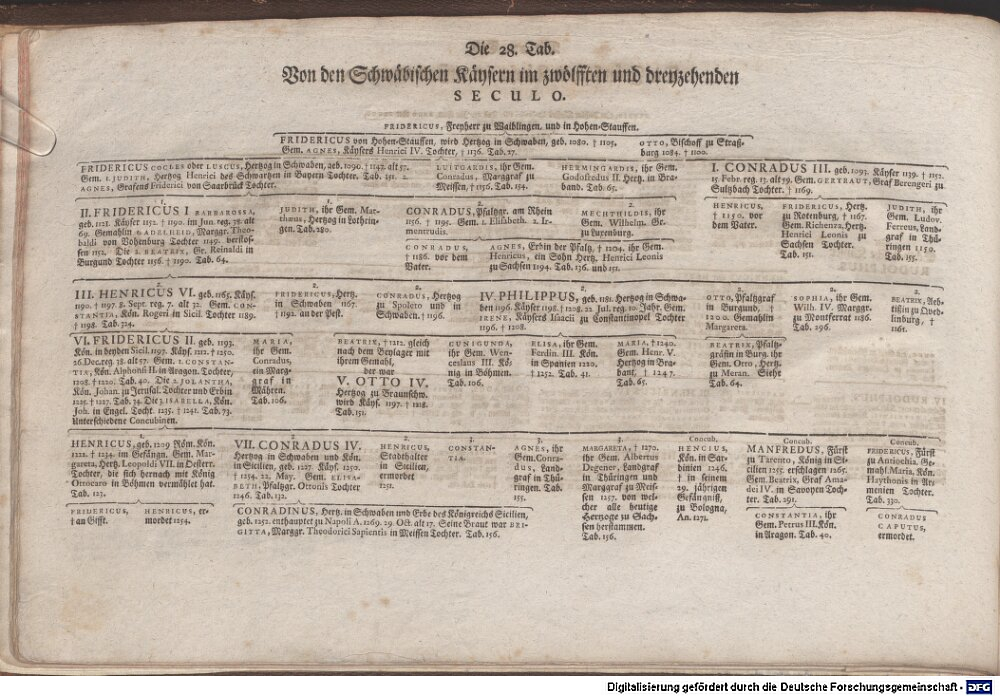 Die 28. Tab.
Von den Schwäbischen Käysern im zwölfften und dreyzehenden
SECULO.
FRIDERICUS, Freyherr zu Waiblingen, und in Hohen-Stauffen.
FRIDERICUS von Hohen-Stauffen, wird Hertzog in Schwaben, geb. 1080. † 1105.
Gem. AGNES, Käysers Henrici IV. Tochter, † 1136. Tab. 27.
OTTO, Bischoff zu Straß-
burg 1084. † 1100.
FRIDERICUS COCLES oder LUSCUS, Hertzog in Schwaben, geb. 1090. † 1147. alt 57.
Gem. 1. JUDITH, Hertzog Henrici des Schwartzen in Bayern Tochter, Tab. 151. 2.
AGNES, Grafens Friderici von Saarbrück Tochter.
LUITGARDIS, ihr Gem.
Conradus, Marggraf zu
Meissen, † 1156. Tab. 154.
HERMINGARDIS, ihr Gem.
Godofredus II. Hertz. in Bra-
band. Tab. 65.
I. CONRADUS III. geb. 1093. Käyser 1139. † 1152.
15. Febr. reg. 13. alt 59. Gem. GERTRAUT, Graf Berengeri zu
Sultzbach Tochter. † 1169.
1.
II. FRIDERICUS I BARBAROSSA,
geb. 1121. Käyser 1152. † 1190. im Jun. reg. 38. alt
69. Gemahlin 1. ADELHEID, Marggr. Theo-
baldi von Vohenburg Tochter 1149. verstos-
sen 1152. Die 2. BEATRIX, Gr. Reinaldi in
Burgund Tochter 1156. † 1190. Tab. 64.
1.
JUDITH, ihr Gem. Mat-
thæus, Hertzog in Lothrin-
gen. Tab. 280.
2.
CONRADUS, Pfaltzgr. am Rhein
1156. † 1195. Gem. 1. Elisabeth. 2. Ir-
mentrudis.
2.
MECHTHILDIS, ihr
Gem. Wilhelm. Gr.
zu Luxenburg.
HENRICUS,
† 1150. vor
dem Vater.
FRIDERICUS, Hertz.
zu Rotenburg, † 1167.
Gem. Richenza, Hertz.
Henrici Leonis zu
Sachsen Tochter.
Tab. 151.
JUDITH, ihr
Gem. Ludov.
Ferreus, Land-
graf in Thü-
ringen 1150.
Tab. 155.
CONRADUS,
† 1186. vor dem
Vater.
AGNES, Erbin der Pfaltz, † 1204. ihr Gem.
Henricus, ein Sohn Hertz. Henrici Leonis
zu Sachsen 1194. Tab. 136. und 151.
2.
III. HENRICUS VI. geb. 1165. Käys.
1190. † 1197. 8. Sept. reg. 7. alt 32. Gem. CON-
STANTIA, Kön. Rogeri in Sicil. Tochter 1189.
† 1198. Tab. 324.
2.
FRIDERICUS, Hertz.
in Schwaben 1167.
† 1192. an der Pest.
2.
CONRADUS, Hertzog
zu Spoleto und in
Schwaben. † 1196.
2.
IV. PHILIPPUS, geb. 1181. Hertzog in Schwa-
ben 1196. Käyser 1198. † 1208. 22. Jul. reg. 10. Jahr. Gem.
IRENE, Käysers Isaacii zu Constantinopel Tochter
1196. † 1208.
2.
OTTO, Pfaltzgraf
in Burgund, †
1200. Gemahlin
Margareta.
2.
SOPHIA, ihr Gem.
Wilh. IV. Marggr.
zu Montferrat 1186.
Tab. 296.
2.
BEATRIX, Aeb-
tißin zu Qved-
linburg, †
1161.
VI. FRIDERICUS II. geb. 1193.
Kön. in beyden Sicil. 1197. Käys. 1212. † 1250.
26. Dec. reg. 38. alt 57. Gem. 1. CONSTAN-
TIA, Kön. Alphonsi II. in Aragon. Tochter,
1208. † 1220. Tab. 40. Die 2. JOLANTHA,
Kön. Johan. zu Jerusal. Tochter und Erbin
1225. † 1227. Tab. 34. Die 3. ISABELLA, Kön.
Joh. in Engel. Tocht. 1235. † 1241. Tab. 73.
Unterschiedene Concubinen.
MARIA,
ihr Gem.
Conradus,
ein Marg-
graf in
Mähren.
Tab. 106.
BEATRIX, † 1212. gleich
nach dem Beylager mit
ihrem Gemahl,
der war
V. OTTO IV.
Hertzog zu Braunschw.
wird Käys. 1197. † 1218.
Tab. 151.
CUNIGUNDA,
ihr Gem. Wen-
ceslaus III. Kö-
nig in Böhmen.
Tab. 106.
ELISA, ihr Gem.
Ferdin. III. Kön.
in Spanien 1220.
† 1252. Tab. 41.
MARIA, † 1240.
Gem. Henr. V.
Hertzog in Bra-
bant, † 1247.
Tab. 65.
BEATRIX, Pfaltz-
gräfin in Burg. ihr
Gem. Otto, Hertz.
zu Meran. Siehe
Tab. 64.
1.
HENRICUS, geb. 1209 Röm. Kön.
1222. † 1234. im Gefängn. Gem. Mar-
gareta, Hertz. Leopoldi VII. in Oesterr.
Tochter, die sich hernach mit König
Ottocaro in Böhmen vermählet hat.
Tab. 123.
2.
VII. CONRADUS IV.
Hertzog in Schwaben und Kön.
in Sicilien, geb. 1227. Käys. 1250.
† 1254. 22. May. Gem. ELISA-
BETH, Pfaltzgr. Ottonis Tochter
1246. Tab. 132.
2.
HENRICUS,
Stadthalter
in Sicilien,
ermordet
1251.
3.
CONSTAN-
TIA.
3.
AGNES, ihr
Gem. Conra-
dus, Land-
graf in Thü-
ringen. Tab.
155.
3.
MARGARETA, † 1270.
ihr Gem. Albertus
Degener, Landgraf
in Thüringen und
Marggraf zu Meis-
sen 1257. von wel-
cher alle heutige
Hertzoge zu Sach-
sen herstammen.
Tab. 156.
Concub.
HENCIUS,
Kön. in Sar-
dinien 1246.
† in seinem
29. jährigen
Gefängnist,
zu Bologna,
An. 1271.
Concub.
MANFREDUS, Fürst
zu Tarento, König in Si-
cilien 1255. erschlagen 1265.
Gem. Beatrix, Graf Ama-
dei IV. in Savoyen Toch-
ter. Tab. 291.
Concub.
FRIDERICUS, Fürst
zu Antiochia. Ge-
mahl. Maria, Kön.
Haythonis in Ar-
menien Tochter.
Tab. 330.
FRIDERICUS,
† an Gifft.
HENRICUS, er-
mordet 1254.
CONRADINUS, Hertz. in Schwaben und Erbe des Königreichs Sicilien,
geb. 1252. enthauptet zu Napoli A. 1269. 29. Oct. alt 17. Seine Braut war BRI-
GITTA, Marggr. Theodorici Sapientis in Meissen Tochter. Tab. 156.
CONSTANTIA, ihr
Gem. Petrus III. Kön.
in Aragon. Tab. 40.
CONRADUS
CAPUTUS,
ermordet.
Digitalisierung gefördert durch die Deutsche Forschungsgemeinschaft - DFG